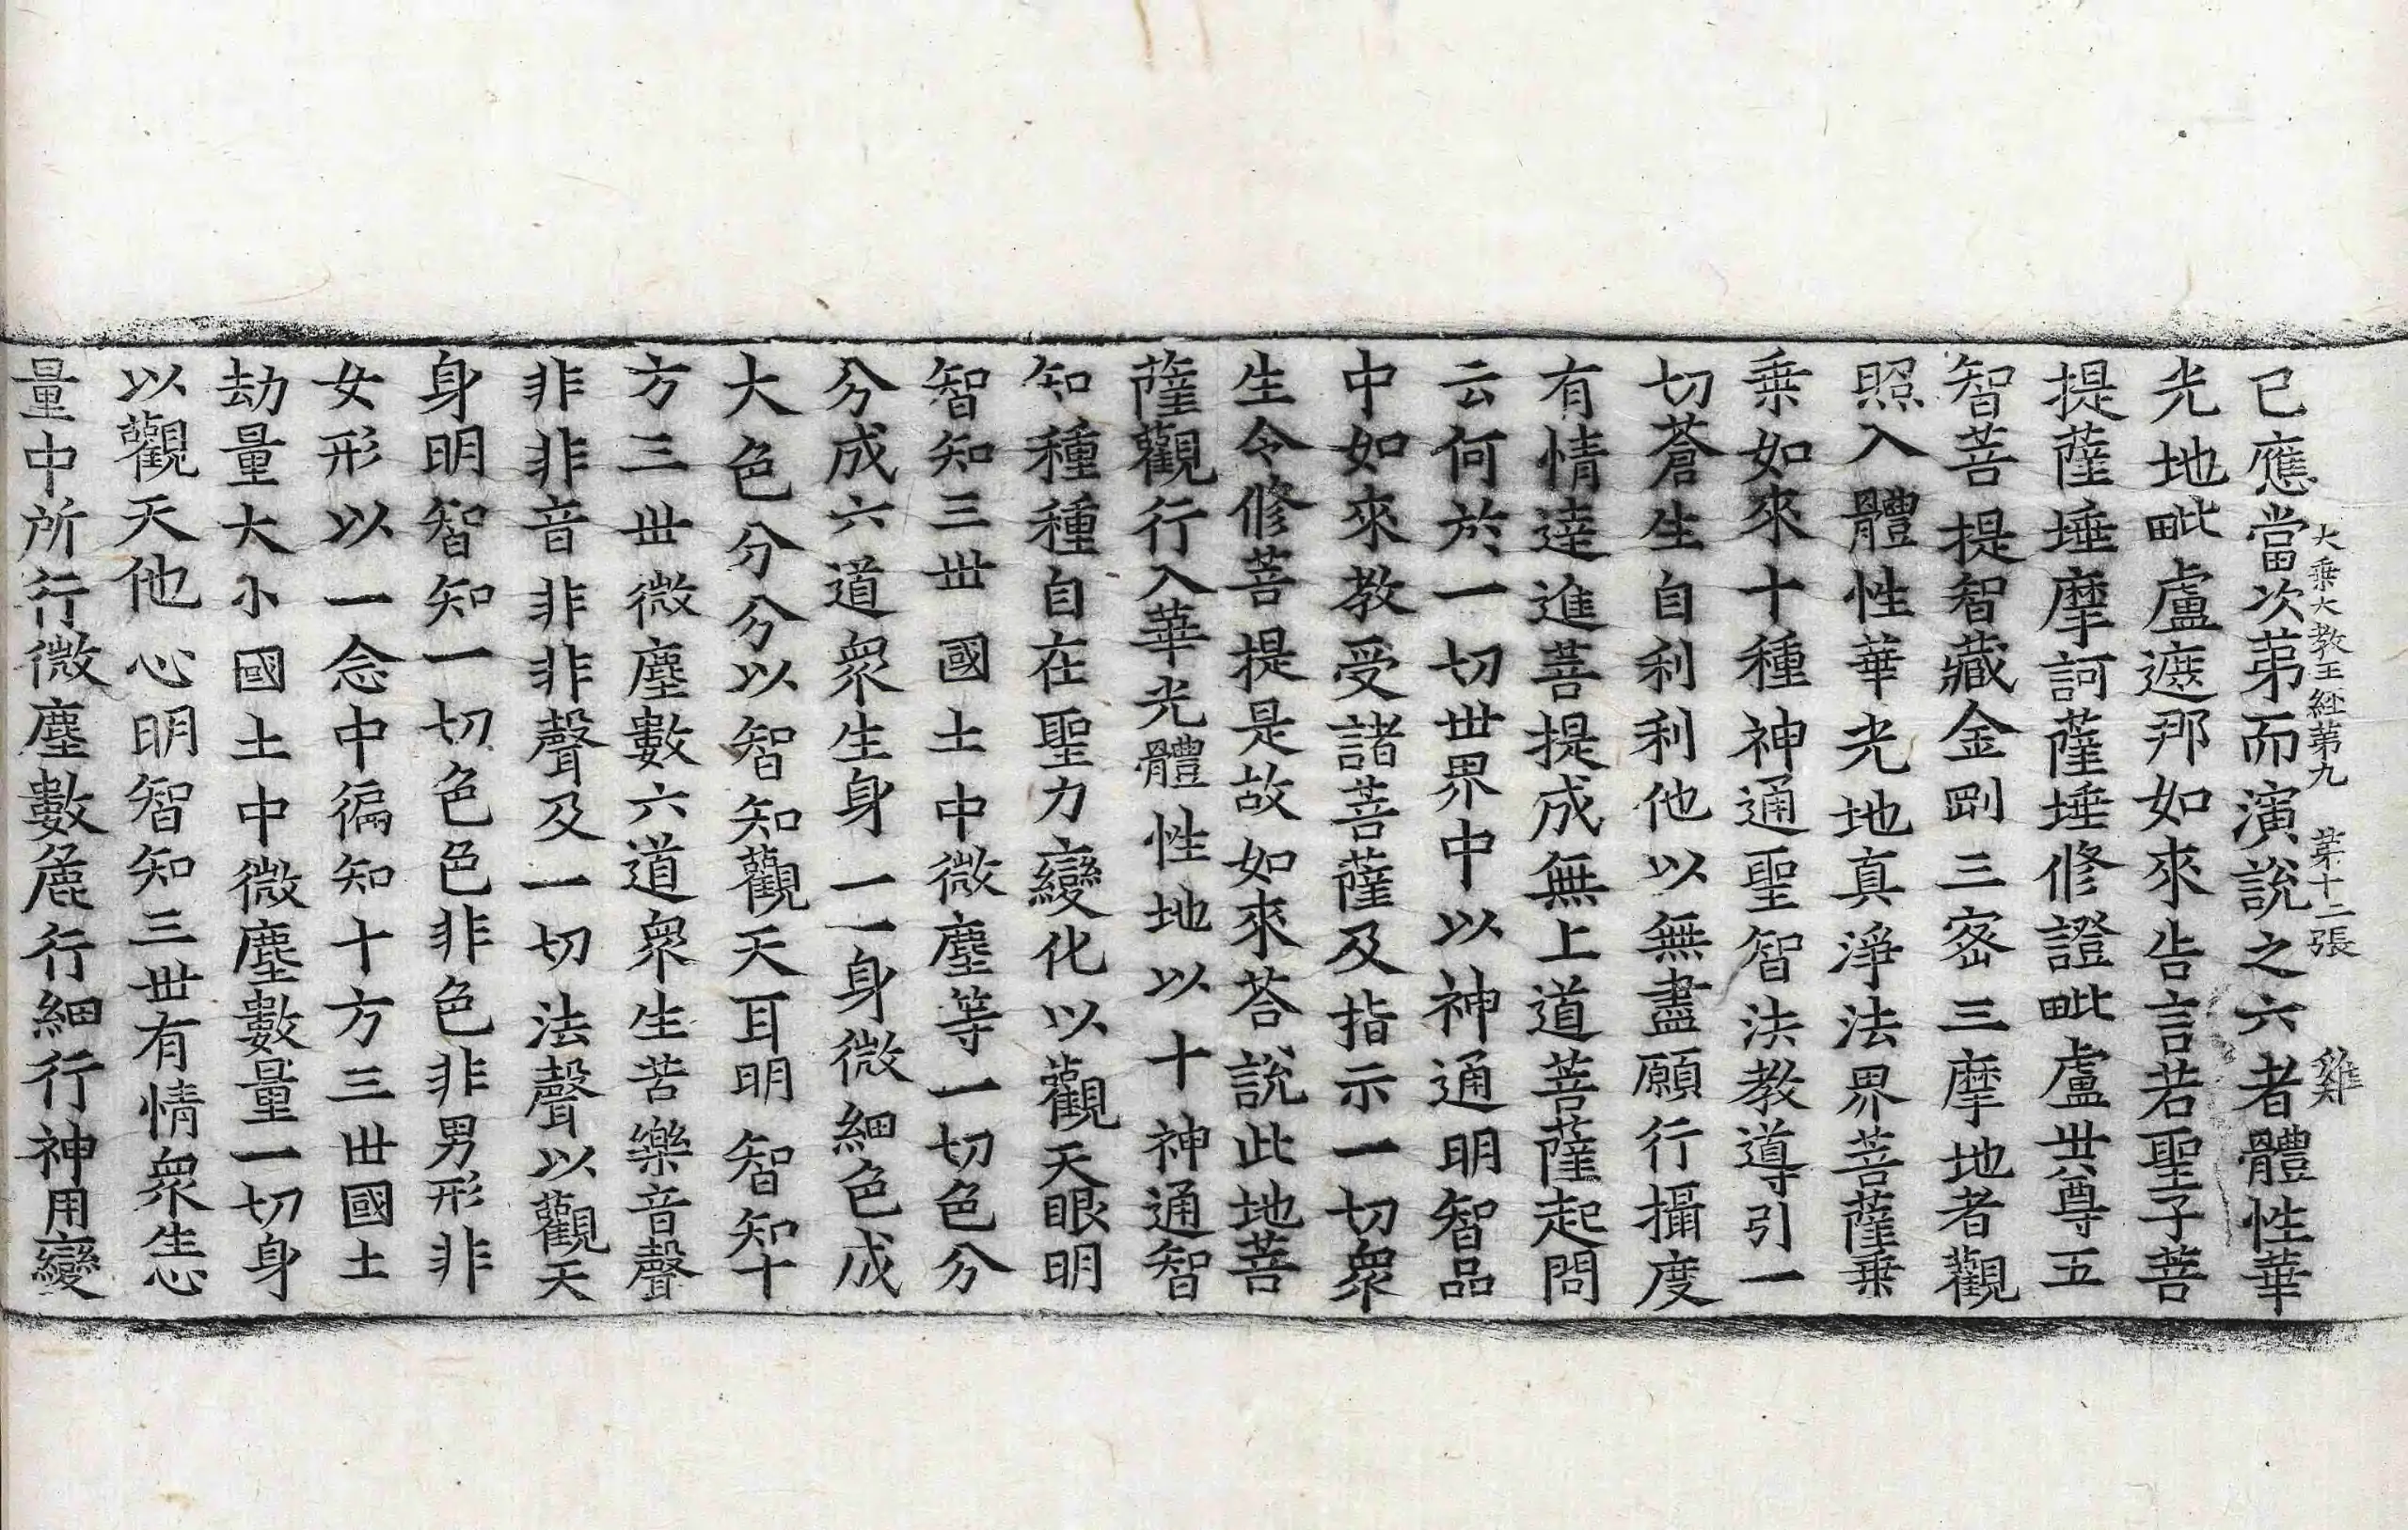 大乘大教王經第九　第十二張　雞
已應當次第而演說之六者體性華
光地毗盧遮那如來告言若聖子菩
提薩埵摩訶薩埵修證毗盧世尊五
智菩提智藏金剛三密三摩地者觀
照入體性華光地真淨法界菩薩乗
乗如來十種神通聖智法教導引一
切蒼生自利利他以無盡願行攝度
有情達進菩提成無上道菩薩起問
云何於一切世界中以神通明智品
中如來教受諸菩薩及指示一切衆
生令修菩提是故如來荅說此地菩
薩觀行入華光體性地以十神通智
知種種自在聖力變化以觀天眼明
智知三世國土中微塵等一切色分
分成六道衆生身一一身微細色成
大色分分以智知觀天耳明智知十
方三世微塵數六道衆生苦樂音聲
非非音非非聲及一切法聲以觀天
身明智知一切色色非色非男形非
女形以一念中徧知十方三世國土
劫量大小國土中微塵數量一切身
以觀天他心明智知三世有情衆生心
量中所行微塵數麁行細行神用變